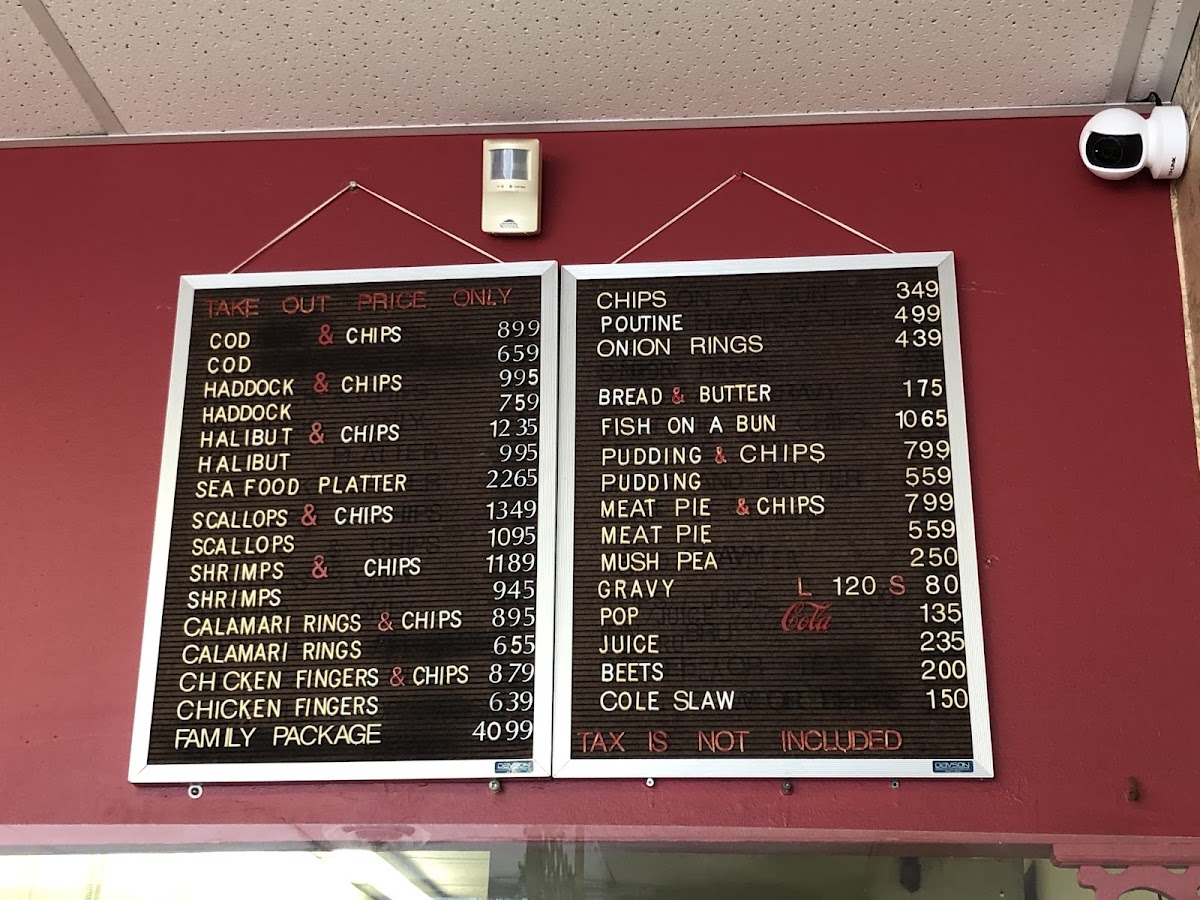 TAKE OUT PRICE ONLY
COD & CHIPS 899
COD 659
HADDOCK & CHIPS 995
HADDOCK 759
HALIBUT & CHIPS 1235
HALIBUT 995
SEA FOOD PLATTER 2265
SCALLOPS & CHIPS 1349
SCALLOPS 1095
SHRIMPS & CHIPS 1189
SHRIMPS 945
CALAMARI RINGS & CHIPS 895
CALAMARI RINGS 655
CHICKEN FINGERS & CHIPS 879
CHICKEN FINGERS 639
FAMILY PACKAGE 4099
DAYSON
CHIPS 349
POUTINE 499
ONION RINGS 439
BREAD & BUTTER 175
FISH ON A BUN 1065
PUDDING & CHIPS 799
PUDDING 559
MEAT PIE & CHIPS 799
MEAT PIE 559
MUSH PEA 250
GRAVY L 120 S 80
POP Cola 135
JUICE 235
BEETS 200
COLE SLAW 150
TAX IS NOT INCLUDED
DAYSON